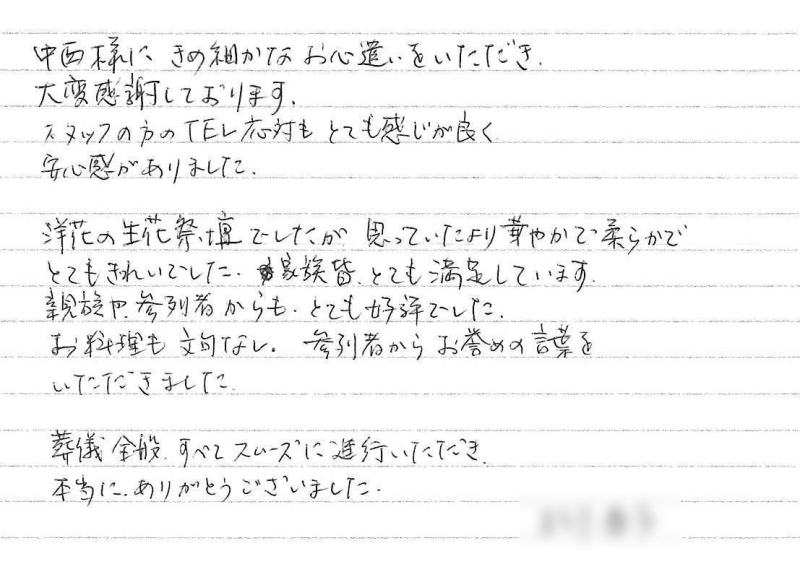 中西様に きめ細かな お心遣いをいただき、
大変感謝しております。
スタッフの方のTEL応対も とても感じが良く
安心感がありました。
洋花の生花祭壇でしたが 思っていたより華やかで柔らかで
とてもきれいでした。家族皆、とても満足しています。
親族や、参列者からも、とても好評でした。
お料理も 文句なし。 参列者から お誉めの言葉を
いただきました。
葬儀全般、すべてスムーズに進行いただき、
本当に、ありがとうございました。